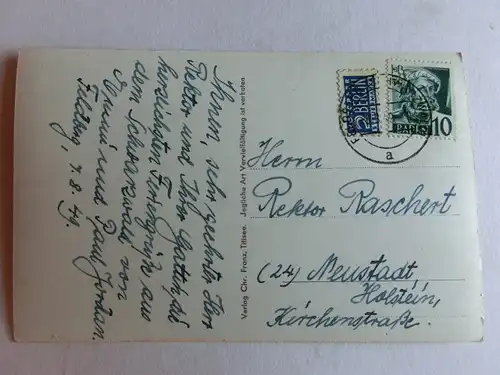 Ihnen, sehr geehrter Herr
Rektor und Ihrer Gattin die
herzlichsten Feriengrüße aus
dem Schwarzwald von
Emmi und Paul
Feldberg, 7.8.49.
Verlag Chr. Franz, Titisee. Jegliche Art Vervielfältigung ist verboten
2 BERLIN
10
a
Herrn
Rektor Raschert
(24) Neustadt,
Holstein,
Kirchenstraße.